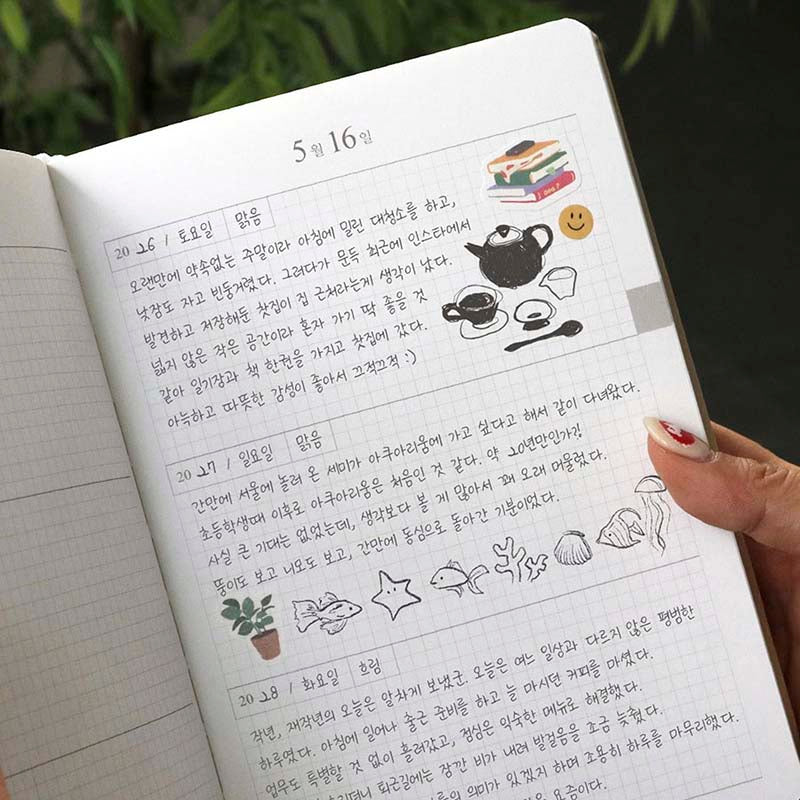 5월 16일
20 26 / 토요일 맑음
오랜만에 약속없는 주말이라 아침에 밀린 대청소를 하고,
낮잠도 자고 빈둥거렸다. 그러다가 문득 최근에 인스타에서
발견하고 저장해둔 찻집이 집 근처라는게 생각이 났다.
넓지 않은 작은 공간이라 혼자 가기 딱 좋을 것
같아 일기장과 책 한권을 가지고 찻집에 갔다.
아늑하고 따뜻한 감성이 좋아서 끄적끄적 :)
20 27 / 일요일 맑음
간만에 서울에 놀러 온 세미가 아쿠아리움에 가고 싶다고 해서 같이 다녀왔다.
초등학생때 이후로 아쿠아리움은 처음인 것 같다. 약 20년만인가?!
사실 큰 기대는 없었는데, 생각보다 볼 게 많아서 꽤 오래 머물렀다.
뚱이도 보고 니모도 보고, 간만에 동심으로 돌아간 기분이었다.
20 28 / 화요일 흐림
작년, 재작년의 오늘은 알차게 보냈군. 오늘은 여느 일상과 다르지 않은 평범한
하루였다. 아침에 일어나 출근 준비를 하고 늘 마시던 커피를 마셨다.
업무도 특별할 것 없이 흘러갔고, 점심은 익숙한 메뉴로 해결했다.
퇴근길에는 잠깐 비가 내려 발걸음을 조금 늦췄다.
의미가 있겠지 하며 조용히 하루를 마무리했다.
요즘이다.